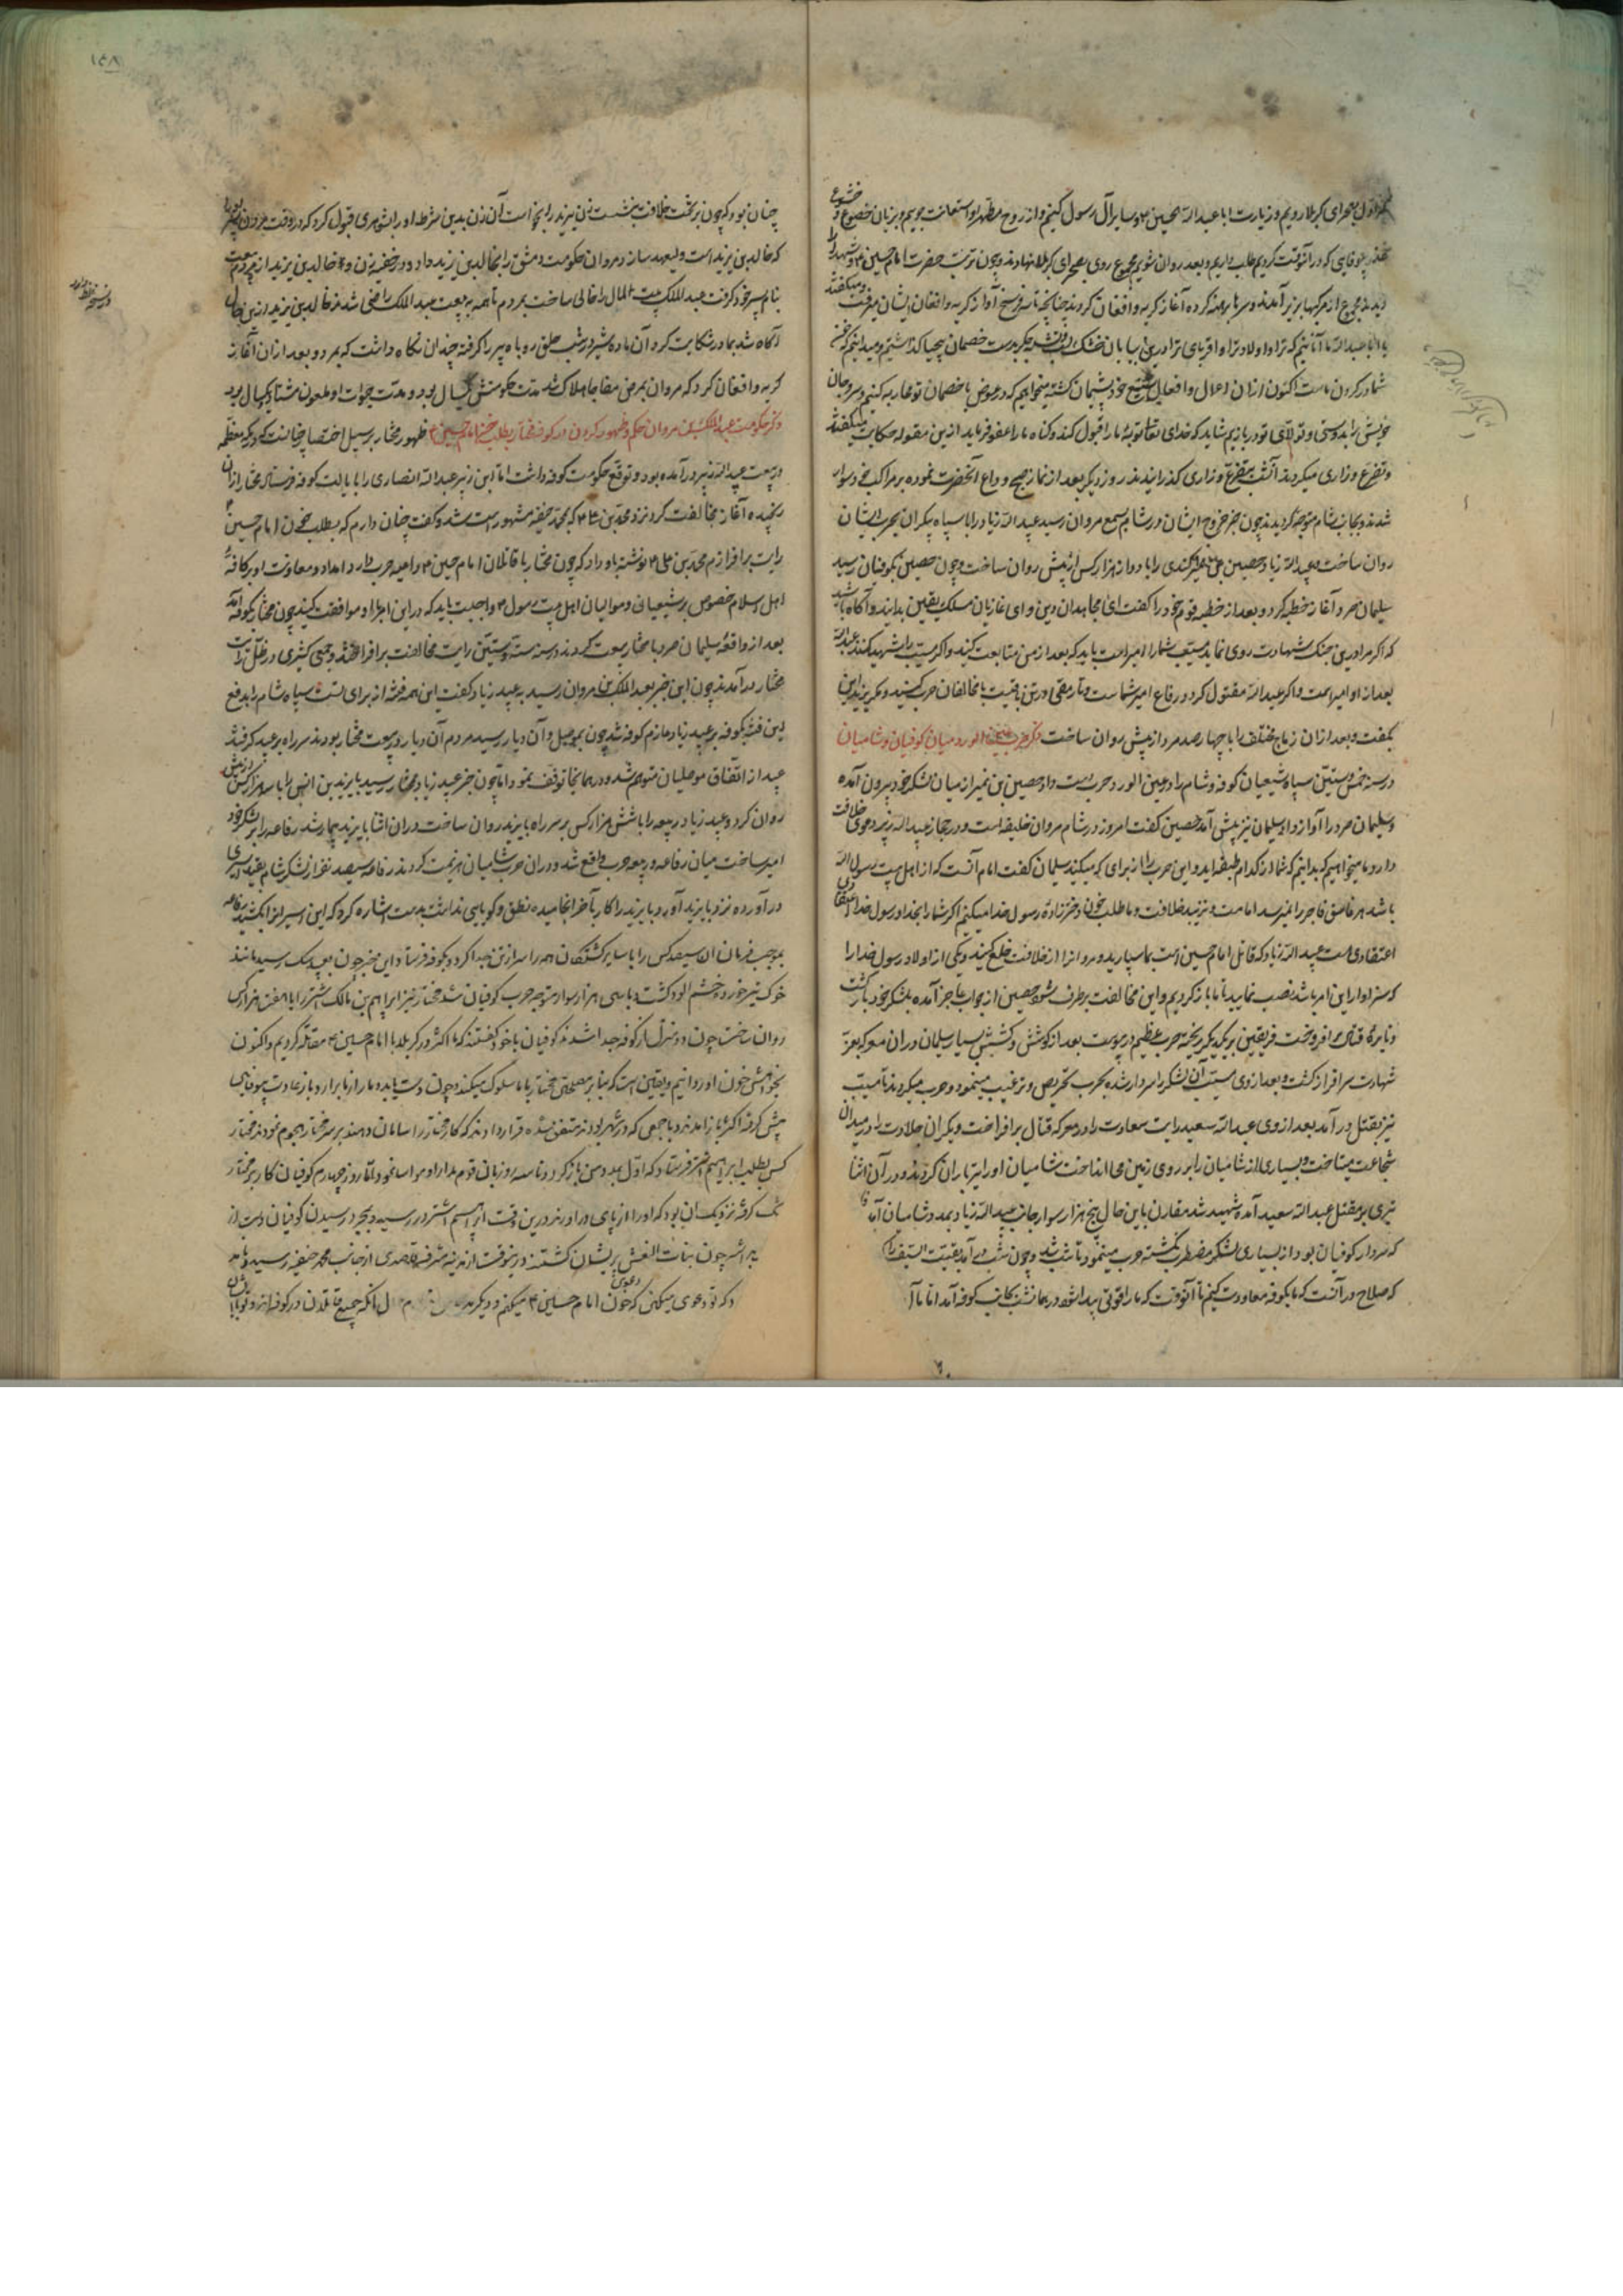 اول بصحرای کربلا رویم و زیارت ابا عبدالله حسین و سایر آل رسول کنیم و از روح مطهر او استعانت جوییم و بزبان خضوع و خشوع
عذر بیوفایی که در آنوقت کردیم طلب داریم و بعد روان شویم مجموع روی بصحرای کربلا نهادند و چون تربت حضرت امام حسین و شهدا را
دیدند مجموع از مرکبها بزیر آمدند و سرها برهنه کرده آغاز گریه و افغان کردند چنانچه تا سه فرسخ آواز گریه و افغان ایشان میرفت و میگفتند
یا ابا عبدالله ما آنانیم که ترا و اولاد ترا و اقربای ترا درین بیابان خشک لب و تشنه جگر بدست خصمان بیحیا گذاشتیم و میدانیم که
شما در گردن ماست اکنون ازان اعمال و افعال شنیع خود پشیمان گشته میخواهیم که در عوض با خصمان تو محاربه کنیم و سر و جان
خویش را بدوستی و تولای تو دربازیم شاید که خدای تعالی توبه ما را قبول کند و گناه ما را عفو فرماید ازین مقوله حکایت میگفتند
و تضرع و زاری میکردند آنشب بتضرع و زاری گذرانیدند روز دیگر بعد از نماز صبح وداع آنحضرت نموده بر مراکب خود سوار
شدند و بجانب شام متوجه گردیدند چون خبر خروج ایشان در شام بسمع مروان رسید عبید الله زیاد را با سپاه بیکران بحرب ایشان
روان ساخت و عبید الله زیاد حصین بن نمیر کندی را با دوازده هزار کس از پیش روان ساخت و چون حصین بکوفیان رسید
سلیمان صرد آغاز خطبه کرد و بعد از خطبه قوم خود را گفت ای مجاهدان دین و ای غازیان مسلک یقین بدانید و آگاه باشید
که اگر مرا درین جنگ شهادت روی نماید مسیب شما را امیر است باید که بعد از من متابعت کنید و اگر مسیب را شهید کنند عبدالله
بعد از او امیر است و اگر عبدالله مقتول گردد رفاع امیر شماست و تا رمقی در تن باقیست با مخالفان حرب کنید و مگریزید این
بگفت و بعد ازان زیاج مختلف را با چهارصد مرد از پیش روان ساخت ذکر حرب عین الورد میان کوفیان و شامیان
در سنه خمس و ستین سپاه شیعیان کوفه و شام را در عین الورد حرب دست داد حصین بن نمیر از میان لشکر خود بیرون آمده
و سلیمان صرد را آواز داد سلیمان نیز پیش آمد حصین گفت امروز در شام مروان خلیفه است و در حجاز عبدالله زبیر دعوی خلافت
دارد ما میخواهیم که بدانیم که شما از کدام طبقه اید و این حرب را از برای که میکنید سلیمان گفت امام آنست که از اهل بیت رسول الله
باشد هر فاسق فاجر را نمیرسد امامت و نزیبد خلافت و ما طلب خون دخترزاده رسول خدا میکنیم اگر شما را بخدا و رسول خدا
اعتقادی هست عبید الله زیاد که قاتل امام حسین است بما سپارید و مروانرا از خلافت خلع کنید و یکی از اولاد رسول خدا را
که سزاوار این امر باشد نصب نمایید تا ما باز گردیم و این مخالفت برطرف شود حصین از جواب عاجز آمده بلشکر خود بازگشت
و نایره قتال برافروخت فریقین بر یکدیگر ریخته حرب عظیم در پیوست بعد از کوشش و کشش بسیار سلیمان دران معرکه بعز
شهادت سرافراز گشت و بعد از وی مسیب آن لشکر را سردار شده بحرب تحریص و ترغیب مینمود و حرب میکردند تا مسیب
نیز بقتل در آمد بعد از وی عبدالله سعید رایت سعادت را در معرکه قتال برافراخت و یکران جلادت را در میدان
شجاعت میتاخت و بسیاری از شامیان را بر روی زمین می انداخت شامیان او را تیرباران کردند و در آن اثنا
تیری بر مقتل عبدالله سعید آمده شهید شد مقارن باین حال پنج هزار سوار از جانب عبید الله زیاد بمدد شامیان آمد
که سردار کوفیان بود از بسیاری لشکر مضطرب نگشته حرب مینمود تا شب شد و چون شب در آمد بقیت السیف را
که صلاح در آنست که ما بکوفه معاودت کنیم تا آنوقت که ما را قوتی پیدا شود در همان شب بجانب کوفه آمد اما
۱۴۸
چنان بود که چون بر تخت خلافت بنشست زن یزید را بخواست آن زن بدین شرط او را بشوهری قبول کرد که در وقت مردن پسر او را
که خالد بن یزید است ولیعهد سازد مروان حکومت دمشق را بخالد بن یزید داد و در خفیه زن و خالد بن یزید از مردم بیعت
بنام پسر خود گرفت عبد الملک بیت المال را خالی ساخت بمردم تا همه به بیعت عبد الملک راضی شدند خالد بن یزید ازین حال
آگاه شد بمادر شکایت کرد آن ماده شیر در شب حلق روباه پیر را گرفته چندان نگاه داشت که بمرد و بعد ازان آغاز
گریه و افغان کرد که مروان بمرض مفاجا هلاک شد مدت حکومتش یکسال بود و مدت حیات او ملعون هشتاد و یکسال بود
ذکر حکومت عبد الملک بن مروان حکم و ظهور کردن در کوفه مختار بطلب خون امام حسین ظهور مختار بر سبیل اختصار چنانست که در مکه معظمه
در بیعت عبدالله زبیر درآمده بود و توقع حکومت کوفه داشت اما ابن زبیر عبدالله انصاری را با یالت کوفه فرستاد مختار ازان
رنجیده آغاز مخالفت کرد نزد محمد بن علی که بمحمد حنفیه مشهور است شد و گفت چنان دارم که بطلب خون امام حسین
رایت برافرازم محمد بن علی نوشته باو داد که چون مختار با قاتلان امام حسین داعیه حرب دارد امداد و معاونت او بر کافه
اهل اسلام خصوص بر شیعیان و موالیان اهل بیت رسول واجبست باید که در این امر با او موافقت کنید چون مختار بکوفه آمد
بعد از واقعه سلیمان صرد با مختار بیعت کردند در سنه ستة و ستین رایت مخالفت برافراختند و جمعی کثیری در ظل رایت
مختار درآمدند چون این خبر بعبد الملک بن مروان رسید به عبید زیاد گفت این همه فتنه از برای تست سپاه شام را بدفع
این فتنه بکوفه بر عبید زیاد عازم کوفه شد چون بموصل و آن دیار رسید مردم آن دیار در بیعت مختار بودند سر راه بر عبید گرفتند
عبید از اتفاق موصلیان متوهم شده در همانجا توقف نمود اما چون خبر عبید زیاد بمختار رسید یزید بن انس را با سه هزار کس از پیش
روان کرد و عبید زیاد ربیعه را با شش هزار کس بر سر راه یزید روان ساخت دران اثنا یزید بیمار شد رفاعه را بر لشکر خود
امیر ساخت میان رفاعه و ربیعه حرب واقع شد و دران حرب شامیان هزیمت کردند رفاعه سیصد نفر از لشکر شام بقید اسیری
درآورده نزد یزید آورد و یزید را کار بآخر انجامیده نطق و گویایی نداشت بدست اشاره کرد که این اسیرانرا بکشید رفاعه
بموجب فرمان آن سیصد کس را با سایر کشتگان همه را سر از تن جدا کرد و بکوفه فرستاد این خبر چون بعبید سگ رسید مانند
خوک تیر خورده خشم آلود گشت و با سی هزار سوار متوجه حرب کوفیان شد مختار نیز ابراهیم بن مالک اشتر را با هفت هزار کس
روان ساخت چون دو منزل از کوفه جدا شدند کوفیان با خود گفتند که ما اکثر در کربلا با امام حسین مقاتله کردیم و اکنون
بخواهش خون او روانیم و یقین است که بنا بر مصلحتی مختار با ما سلوک میکند چون دست یابد دمار از ما برآرد باز عادت بیوفایی
پیش گرفته اکثر باز آمدند و با جمعی که در شهر بودند متفق شده قرار دادند که کار مختار را سامان دهند بر سر مختار هجوم نمودند مختار
کس بطلب ابراهیم اشتر فرستاد که اول باز گرد و تا سه روز بآن قوم مدارا و مواسا نمود اما روز چهارم کوفیان کار بر مختار
تنگ کرفته نزدیک آن بود که او را از پای درآورند درین وقت ابراهیم اشتر در رسید و بمجرد رسیدن کوفیان دست از
چون بنات النعش پریشان گشتند درینوقت از مدینه مشرفه قاصدی از جانب محمد حنفیه رسید و نامه
که تو دعوی میکنی که خون امام حسین میکنم و دیگر آنکه جمیع قاتلان در کوفه اند و تو با ایشان